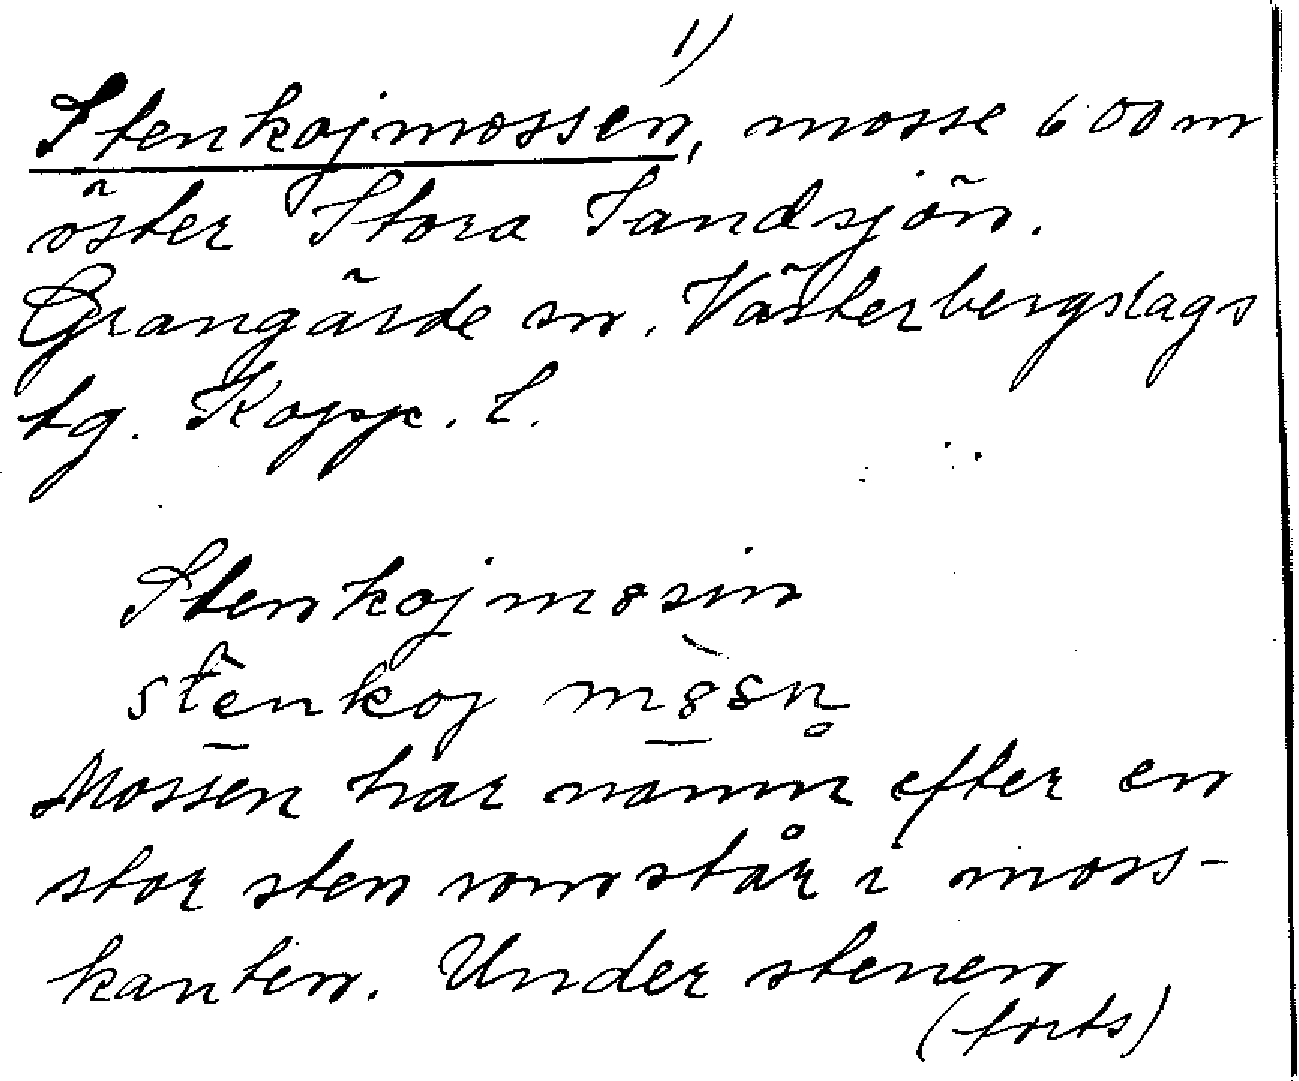 1)
Stenkojmossen, mosse 600 m
öster Stora Sandsjön.
Grangärde sn. Västerbergslags
tg. Kopp. l.
Stenkojmȣsin
stēnkoj mȣ̀sn̥
Mossen har namn efter en
stor sten som står i moss-
kanten. Under stenen
(forts)